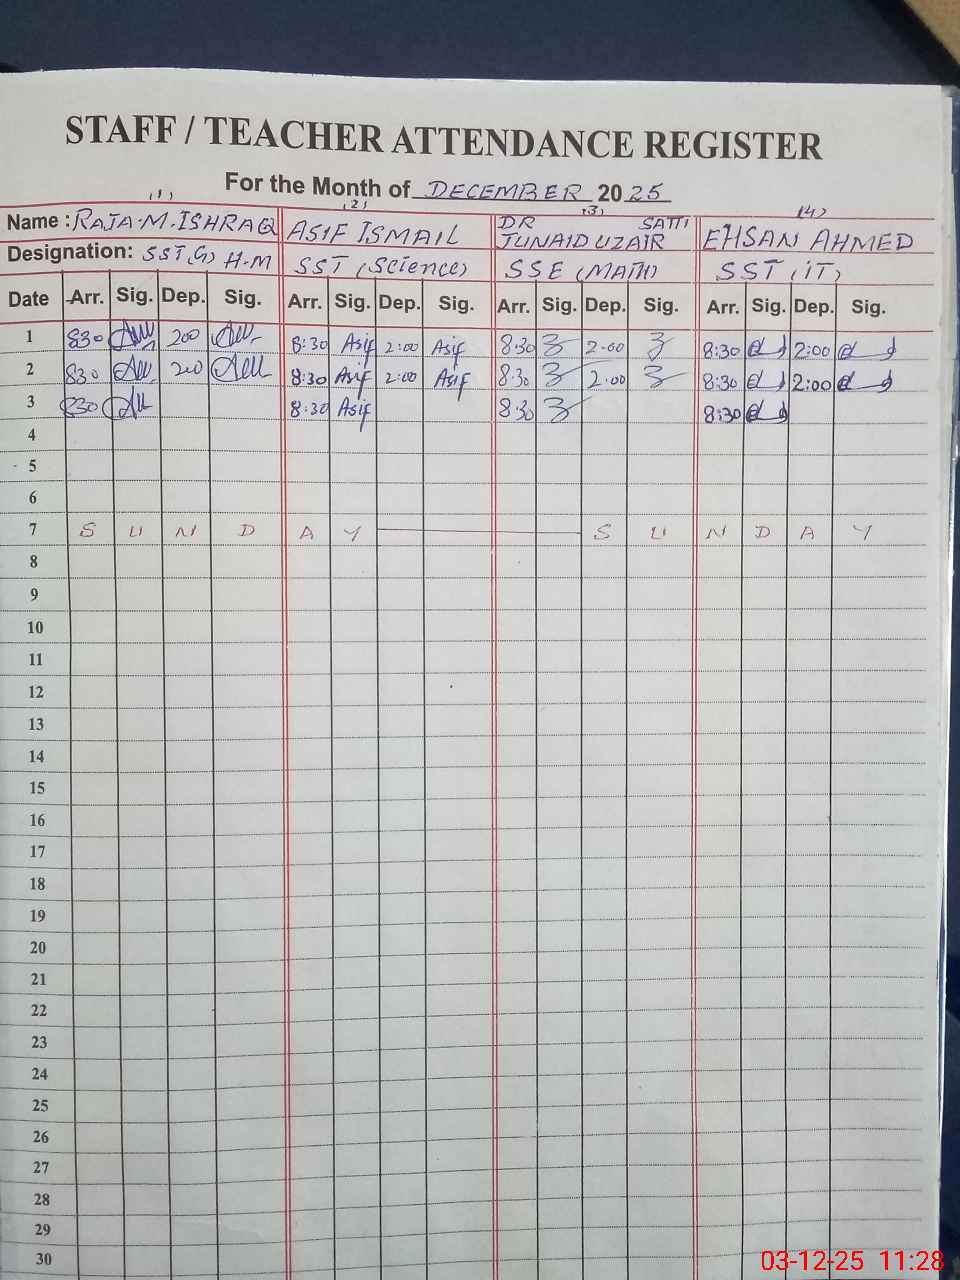 STAFF / TEACHER ATTENDANCE REGISTER
For the Month of DECEMBER 2025
(1) (2) (3) (4)
Name : RAJA.M.ISHRAQ ASIF ISMAIL DR JUNAID UZAIR SATTI EHSAN AHMED
Designation: SST(G) H.M SST (Science) SSE (MATH) SST (IT)
Date Arr. Sig. Dep. Sig. Arr. Sig. Dep. Sig. Arr. Sig. Dep. Sig. Arr. Sig. Dep. Sig.
1 830 200 8:30 Asif 2:00 Asif 8:30 2:00 8:30 2:00
2 830 200 8:30 Asif 2:00 Asif 8:30 2:00 8:30 2:00
3 830 8:30 Asif 8:30 8:30
4
5
6
7 S U N D A Y S U N D A Y
8
9
10
11
12
13
14
15
16
17
18
19
20
21
22
23
24
25
26
27
28
29
30
03-12-25 11:28